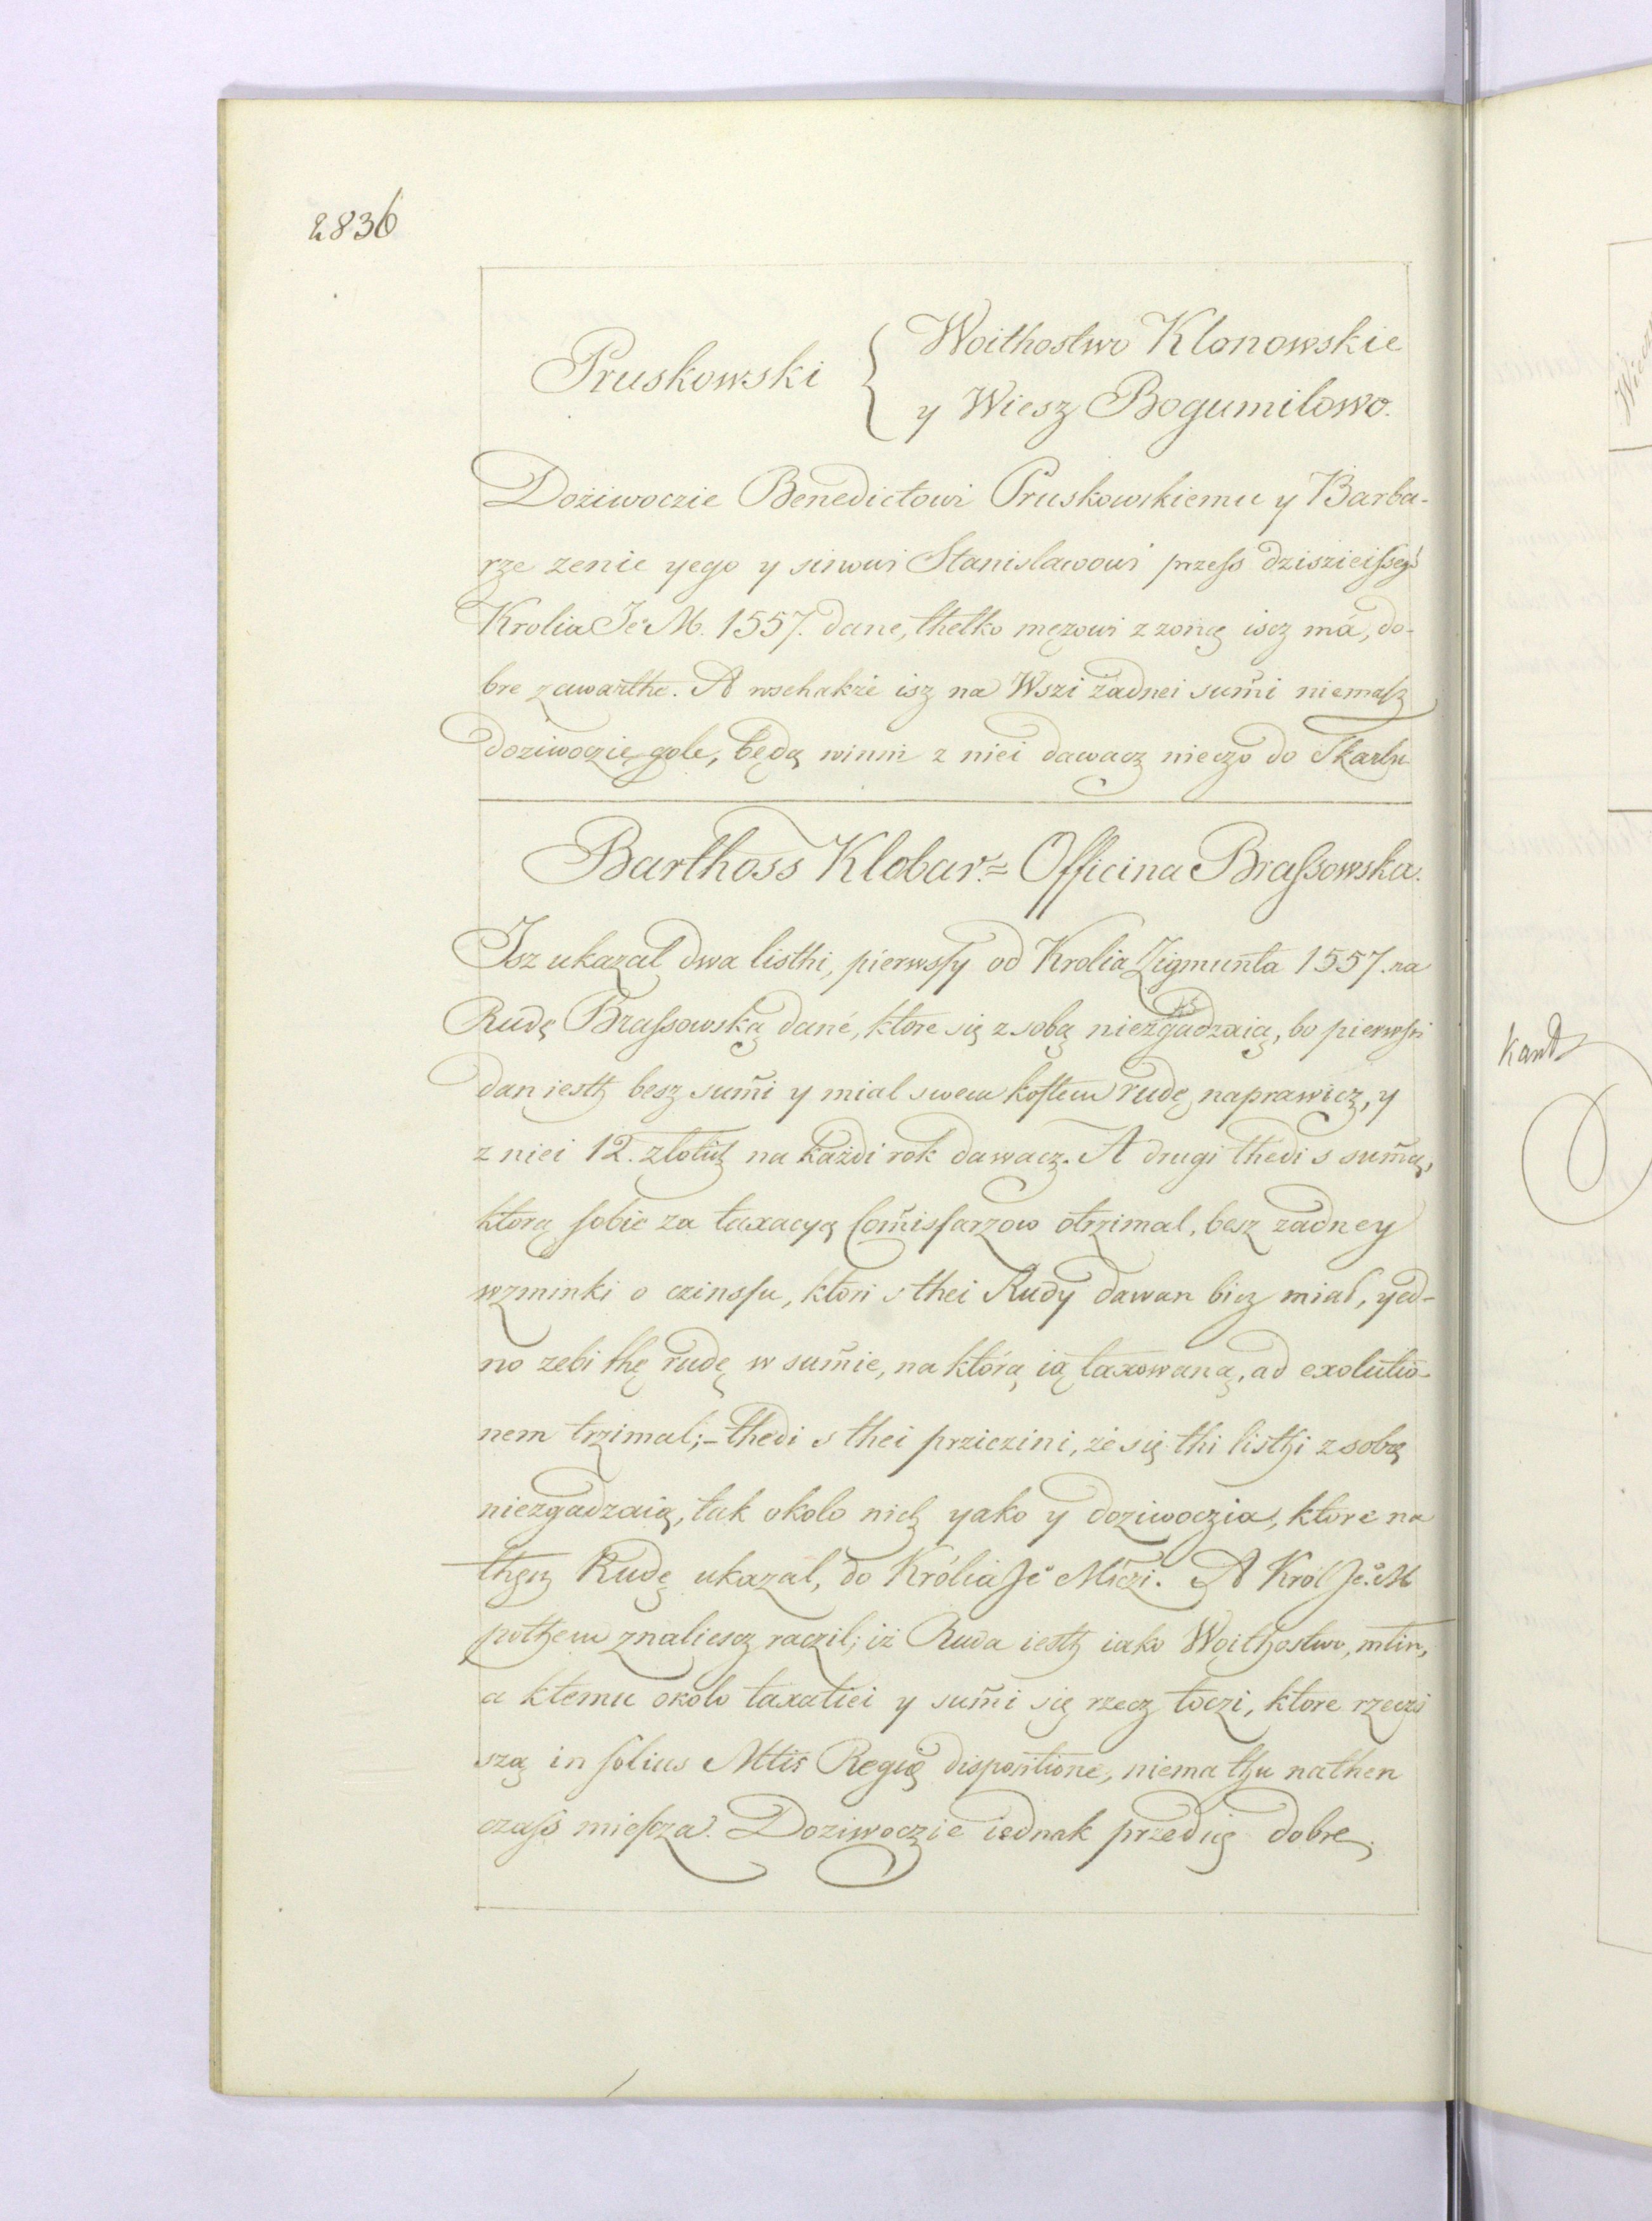 2836
Pruskowski { Woithostwo Klonowskie
y Wiesz Bogumilowo.
Dożiwoczie Benedictowi Pruskowskiemu y Barba-
rze zenie yego y sinowi Stanislawowi przess dzisieissego
Krolia Je° M. 1557. dane, thelko męzowi z zoną iscz má, do-
bre zawarthe. A wschakże isz na Wszi żadnei sum̃i niemasz
doziwoczie gole, będą winni z niei dawacz nieczo do Skarbu
Barthoss Klobar. Officina Brassowska.
Isz ukazal dwa listhi, pierwssy od Krolia Zigmunta 1557. na
Rudę Brassowską dané, ktore się z sobą niezgadzaią, bo pierwssi
dan iesth besz sum̃i y mial swem kosztem rudę naprawicz, y
z niei 12. zlotich na każdi rok dawacz. A drugi thedi s sum̃ą,
ktorą sobie za taxacyą Com̃issarzow otrzimal, besz zadney
wzminki o czinssu, ktori s thei Rudy dawan bicz mial, yed-
no zebi thę rudę w sum̃ie, na którą ią taxowaną, ad exolutio-
nem trzimal; thedi s thei prziczini, że się thi listhi z sobą
niezgadzaią, tak okolo nich yako y doziwoczia, ktore na
thęsz Rudę ukazal, do Królia Je° Mczi. A Król Je° M
pothem znaliescz raczil; iż Ruda iesth iako Woithostwo, mlin,
a ktemu okolo taxatiei y sum̃i się rzecz toczi, ktore rzeczi
szą in solius Mttis Regię dispositione, niema thu nathen
czass miescza. Doziwoczie iednak przedię dobre.